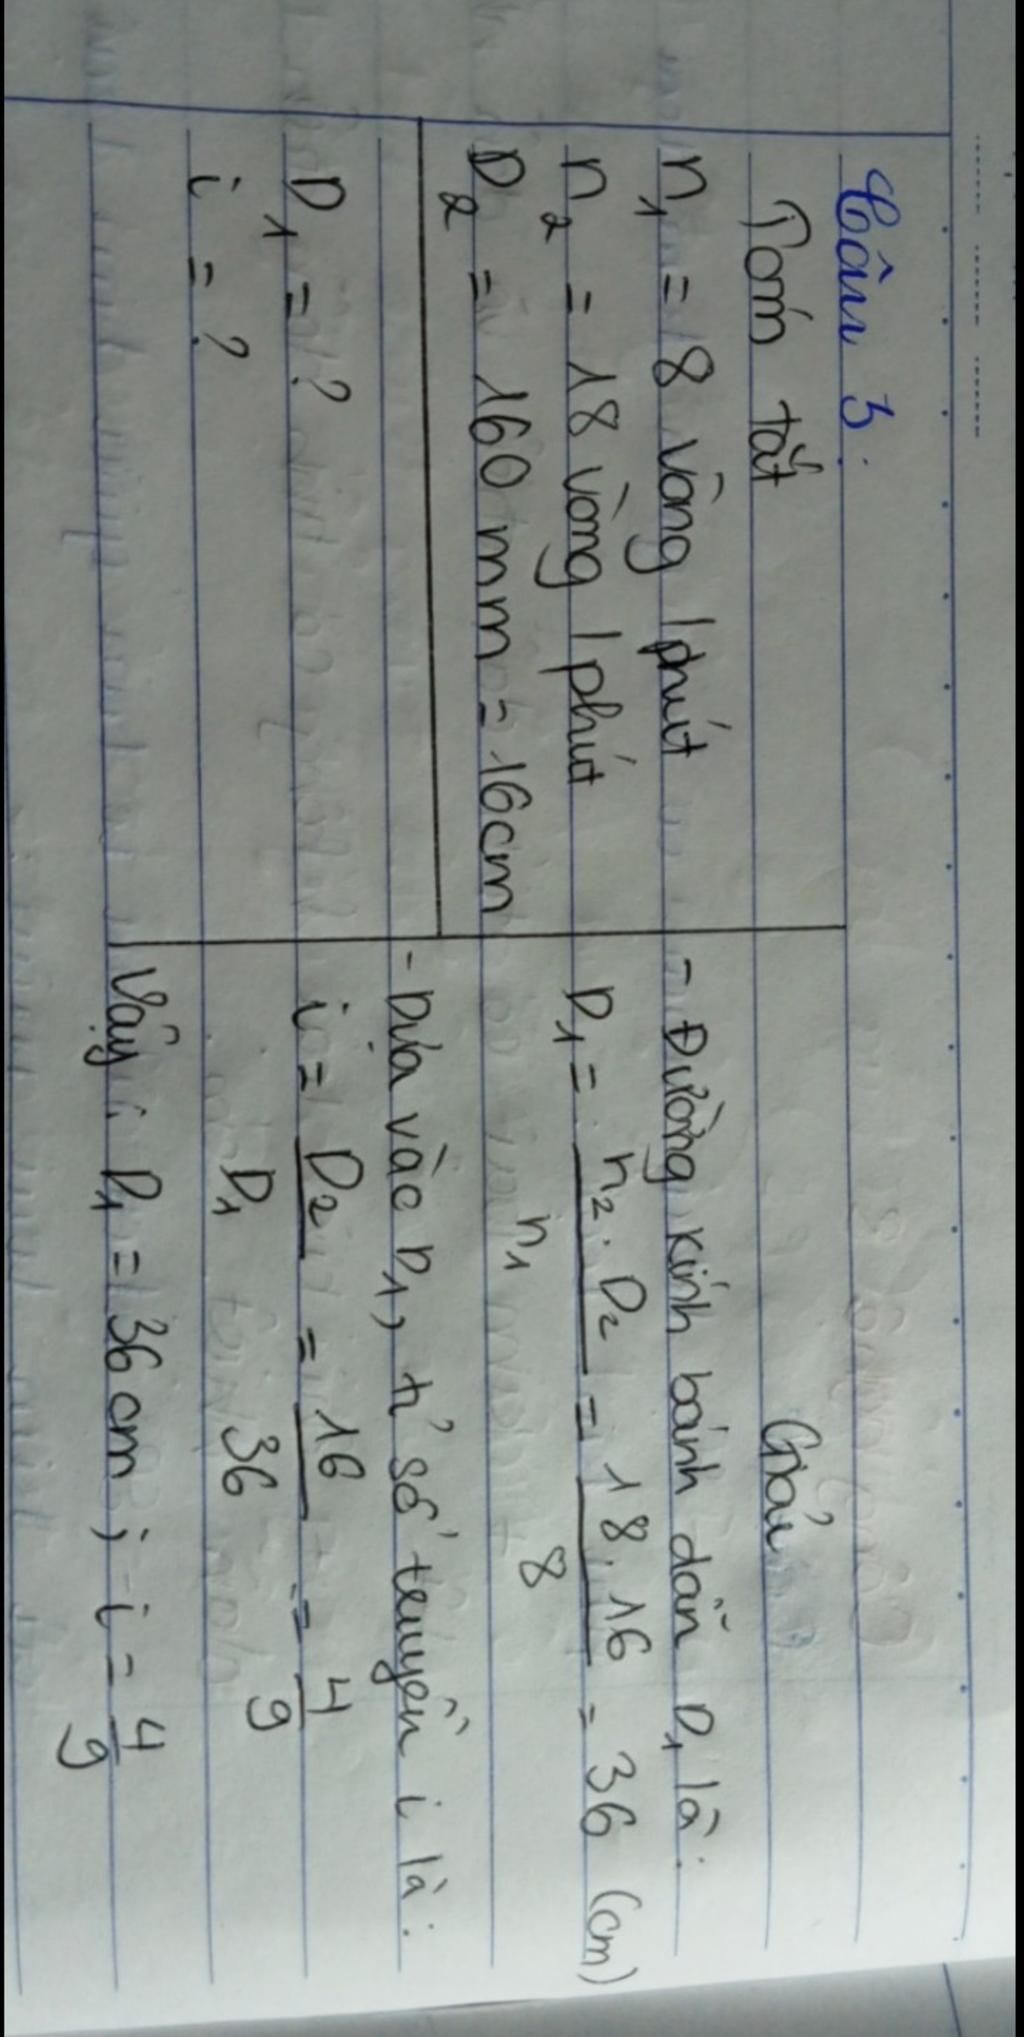 Câu 3:
Tóm tắt
n₁ = 8 vòng / phút
n₂ = 18 vòng / phút
D₂ = 160 mm = 16cm
D₁ = ?
i = ?
Giải
- Đường kính bánh dẫn D₁ là:
D₁ = n₂ . D₂ / n₁ = 18 . 16 / 8 = 36 (cm)
- Dựa vào D₁, tỉ số truyền i là:
i = D₂ / D₁ = 16 / 36 = 4 / 9
Vậy: D₁ = 36 cm ; i = 4 / 9